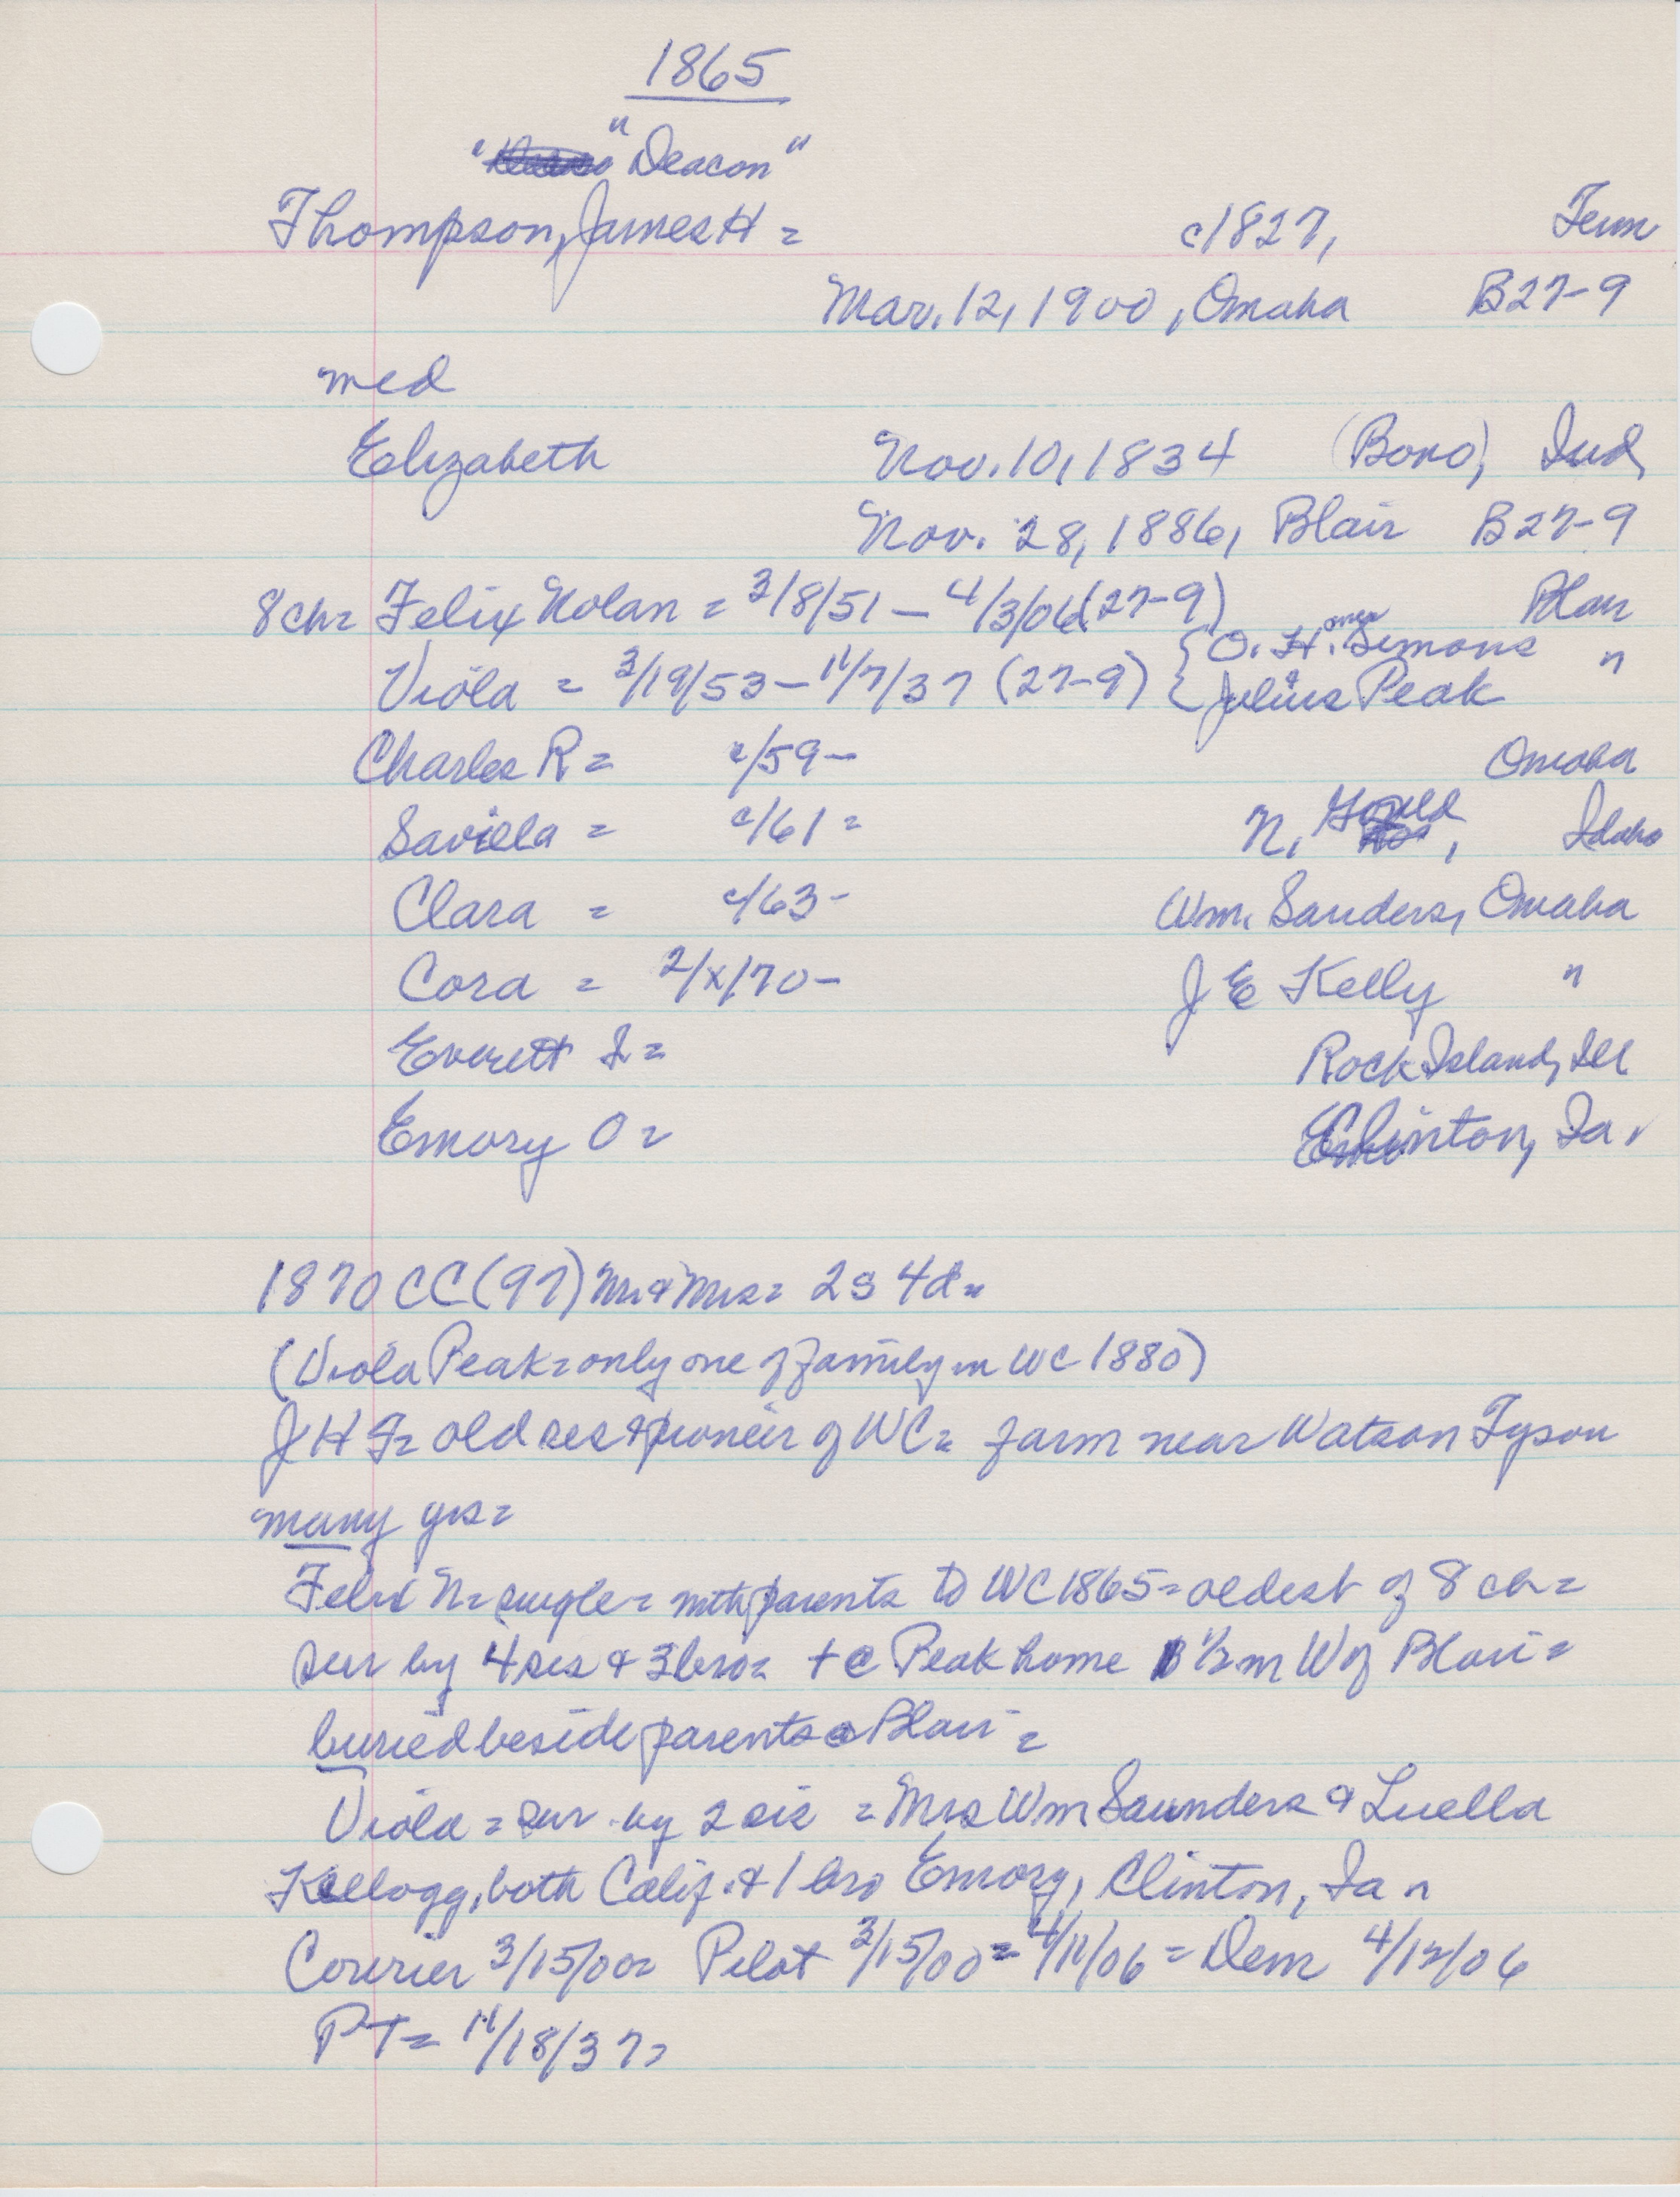 1865
" " Deacon "
Thompson, James H = c1827, Tenn
Mar. 12, 1900, Omaha B27-9
med
Elizabeth Nov. 10, 1834 (Bono), Ind,
Nov. 28, 1886, Blair B27-9
8 ch = Felix Nolan = 3/8/51 — 4/3/06 (27-9) Blair
Viola = 3/19/53 — 11/7/37 (27-9) { O. H. Simons "
{ Julius Peak
Charles R = c/59 — Omaha
Savilla = c/61 = N. Gould, Idaho
Clara = c/63 - Wm. Sanders, Omaha
Cora = 2/x/70 - J E Kelly "
Everett I = Rock Island, Ill
Emory O = Clinton, Ia.
1870 CC (97) Mr & Mrs = 2s 4d =
(Viola Peak = only one of family in WC 1880)
J H T = old res & pioneer of WC = farm near Watson Tyson
many yrs =
Felix N = single = with parents to WC 1865 = oldest of 8 ch =
sur by 4 sis & 3 bro = + @ Peak home 1/2 m W of Blair =
buried beside parents @ Blair =
Viola = sur by 2 sis = Mrs Wm Saunders & Luella
Kellogg, both Calif. & 1 bro Emory, Clinton, Ia =
Courier 3/15/00 = Pilot 3/15/00 = 4/11/06 = Dem 4/12/06
PT = 11/18/37 =